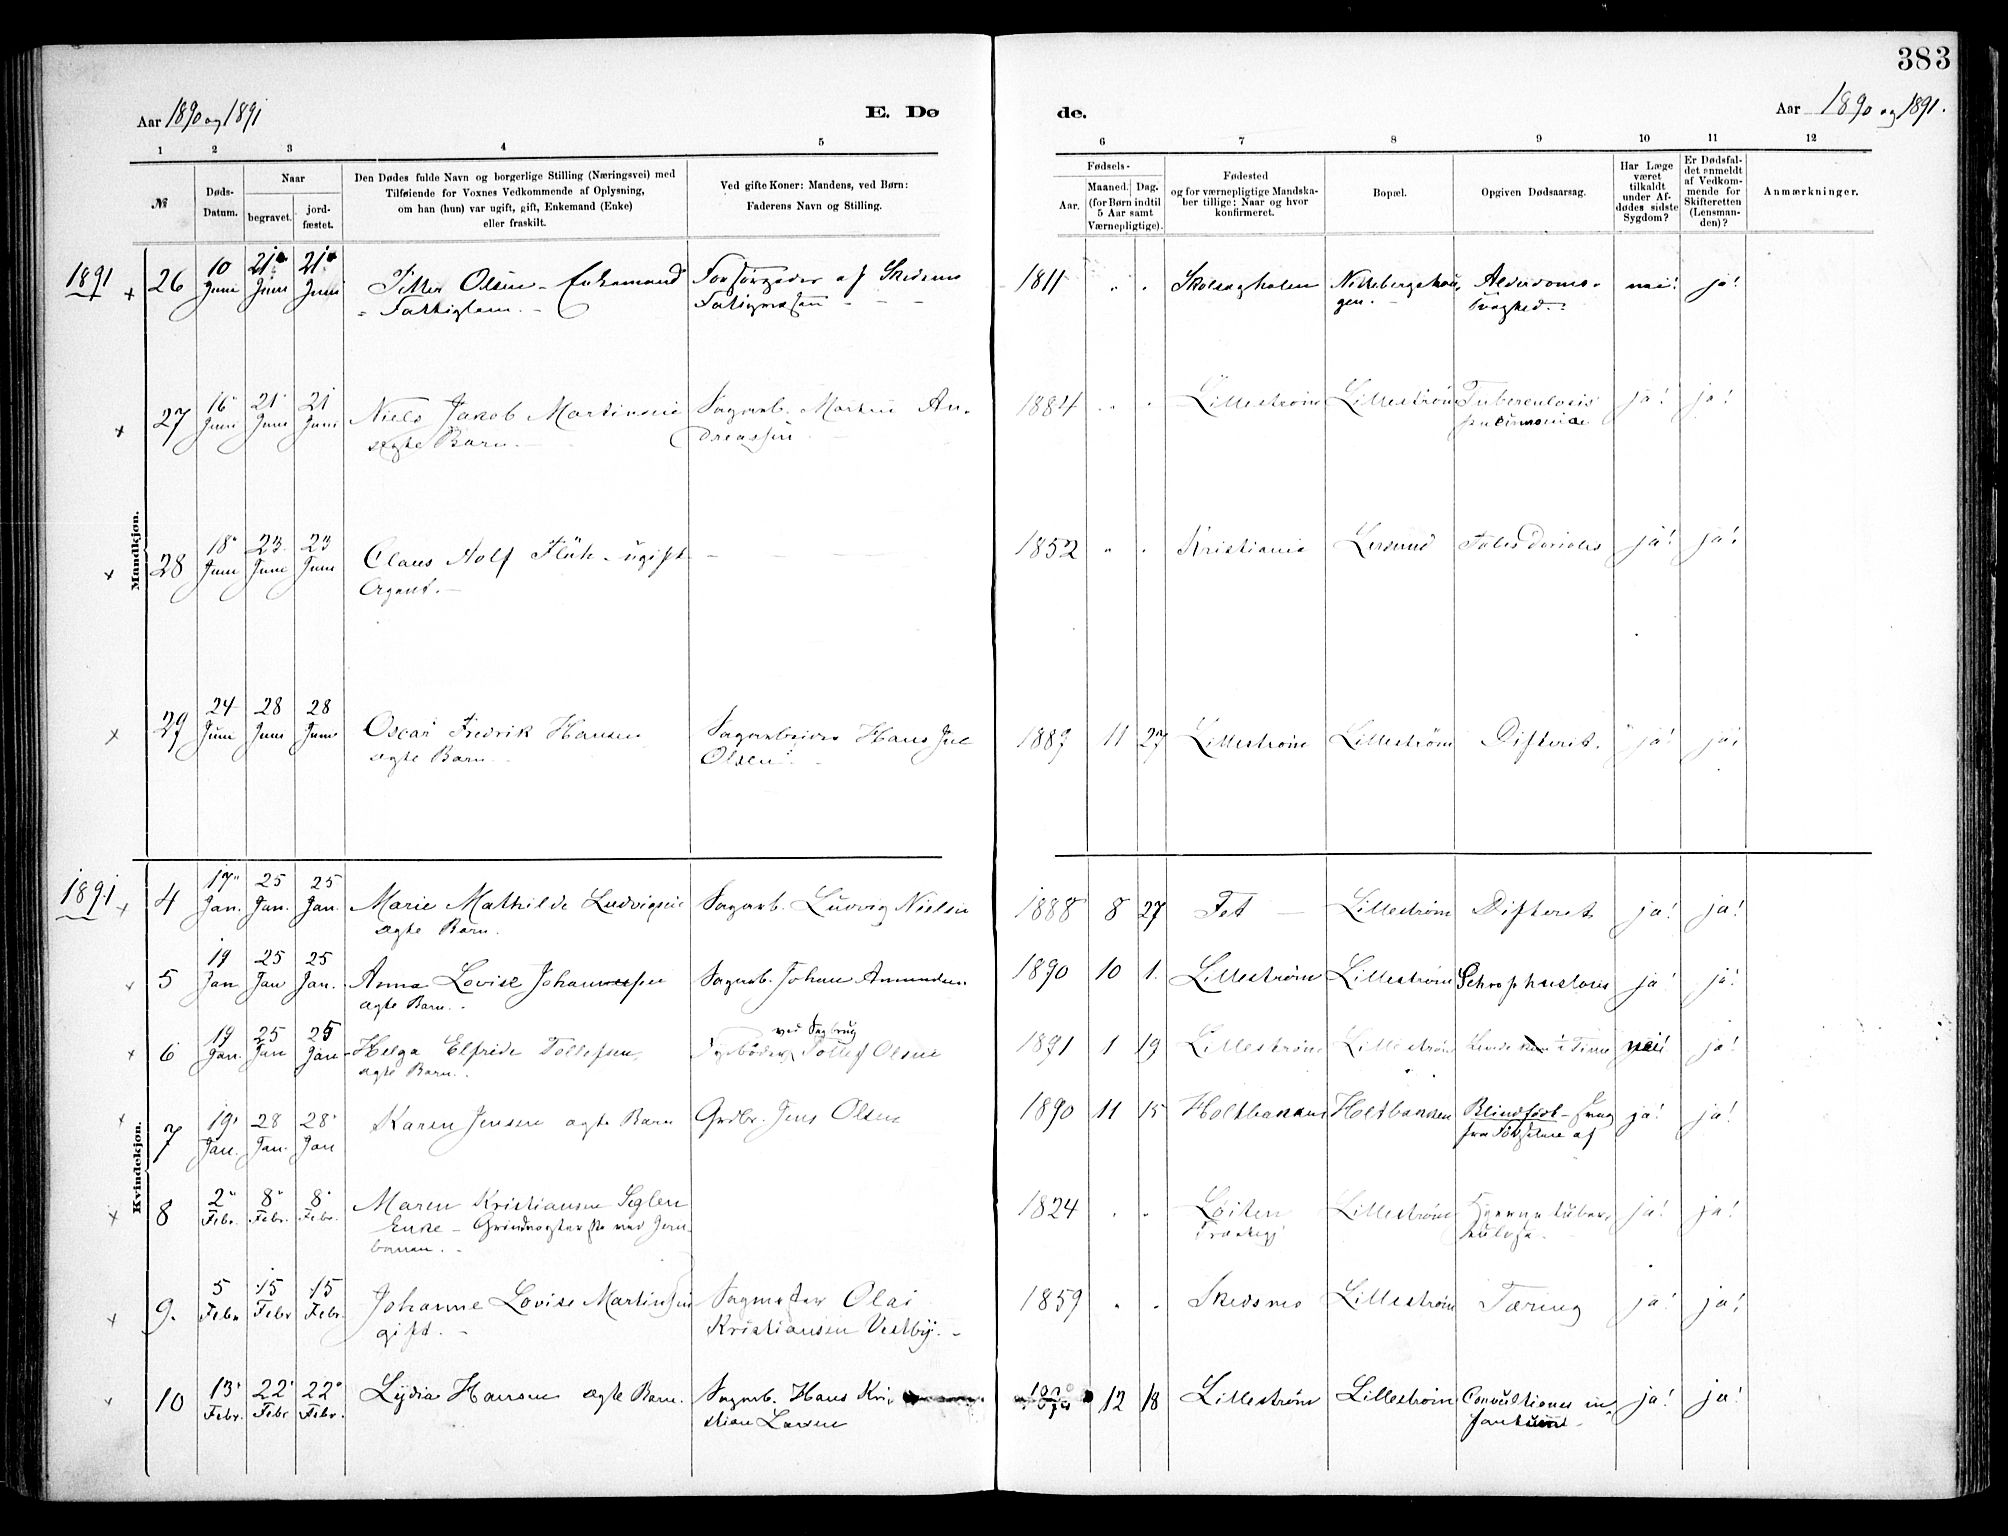 383
Aar 1890 og 1891
E. Dø
de.
Aar 1890 og 1891.
1 2 3 4 5 6 7 8 9 10 11 12
№
Døds-
Datum.
Naar
begravet.
jord-
fæstet.
Den Dødes fulde Navn og borgerlige Stilling (Næringsvei) med
Tilføiende for Voxnes Vedkommende af Oplysning,
om han (hun) var ugift, gift, Enkemand (Enke)
eller fraskilt.
Ved gifte Koner: Mandens, ved Børn:
Faderens Navn og Stilling.
Fødsels-
Aar.
Maaned. Dag.
(for Børn indtil
5 Aar samt
Værnepligtige).
Fødested
og for værnepligtige Mandska-
ber tillige: Naar og hvor
konfirmeret.
Bopæl.
Opgiven Dødsaarsag.
Har Læge
været
tilkaldt
under Af-
dødes sidste
Sygdom?
Er Dødsfal-
det anmeldt
af Vedkom-
mende for
Skifteretten
(Lensman-
den)?
Anmærkninger.
Mandkjøn.
1891 26 10 Juni 21 Juni 21 Juni Olsen - Enkemand af Skedsmo 1811 Alderdoms- nei! ja!
Fattiglem. - gen. - svaghed.
27 16 Juni 21 Juni 21 Juni Niels Jakob Martinsen Sagarb. Martin An- 1884 Lillestrøm Lillestrøm Tuberculosis ja! ja!
ægte Barn. dreassen
28 18 Juni 23 Juni 23 Juni Claus Adolf - ugift 1852 Kristiania ja! ja!
Agent. -
29 24 Juni 28 Juni 28 Juni Oscar Fredrik Hansen Sagarbeider Hans 1887 11 27 Lillestrøm Lillestrøm Difterit. ja! ja!
ægte Barn. Olsen.
Kvindekjøn.
1891 4 17 Jan. 25 Jan. 25 Jan. Marie Mathilde Ludvigsen Sagarb. Ludvig Nielsen 1888 8 27 Fet - Lillestrøm Difterit ja! ja!
ægte Barn.
5 19 Jan 25 Jan 25 Jan. Anna Lovise Johannessen Sagarb. Johan Amundsen 1890 10 1. Lillestrøm Lillestrøm ja! ja!
ægte Barn.
ved Sagbrug
6 19 Jan. 25 Jan 25 Jan Helga Elfride Tollefsen Tollef Olsen 1891 1 19 Lillestrøm Lillestrøm nei! ja!
ægte Barn.
7 19 Jan. 28 Jan. 28 Jan Karen Jensen ægte Barn Grdbr. Jens Olsen 1890 11 15 Holtbakken Holtbakken Blindfødt - svag ja! ja!
fra Fødselen af
8 2 Febr. 8 Febr. 8 Febr. Maren Kristiansen Seglen 1824 Løiten Lillestrøm ja! ja!
Enke - ved Jern-
banen.
9. 5 Febr 15 Febr 15 Febr. Johanne Lovise Martinsen Sagmester Olai 1859 Skedsmo Lillestrøm Tæring ja! ja!
gift. - Kristiansen Vestby. -
10 13 Febr. 22 Febr 22 Febr. Lydia Hansen ægte Barn. Sagarb. Hans Kri- 12 18 Lillestrøm Lillestrøm Convultiones in- ja! ja!
stian Larsen